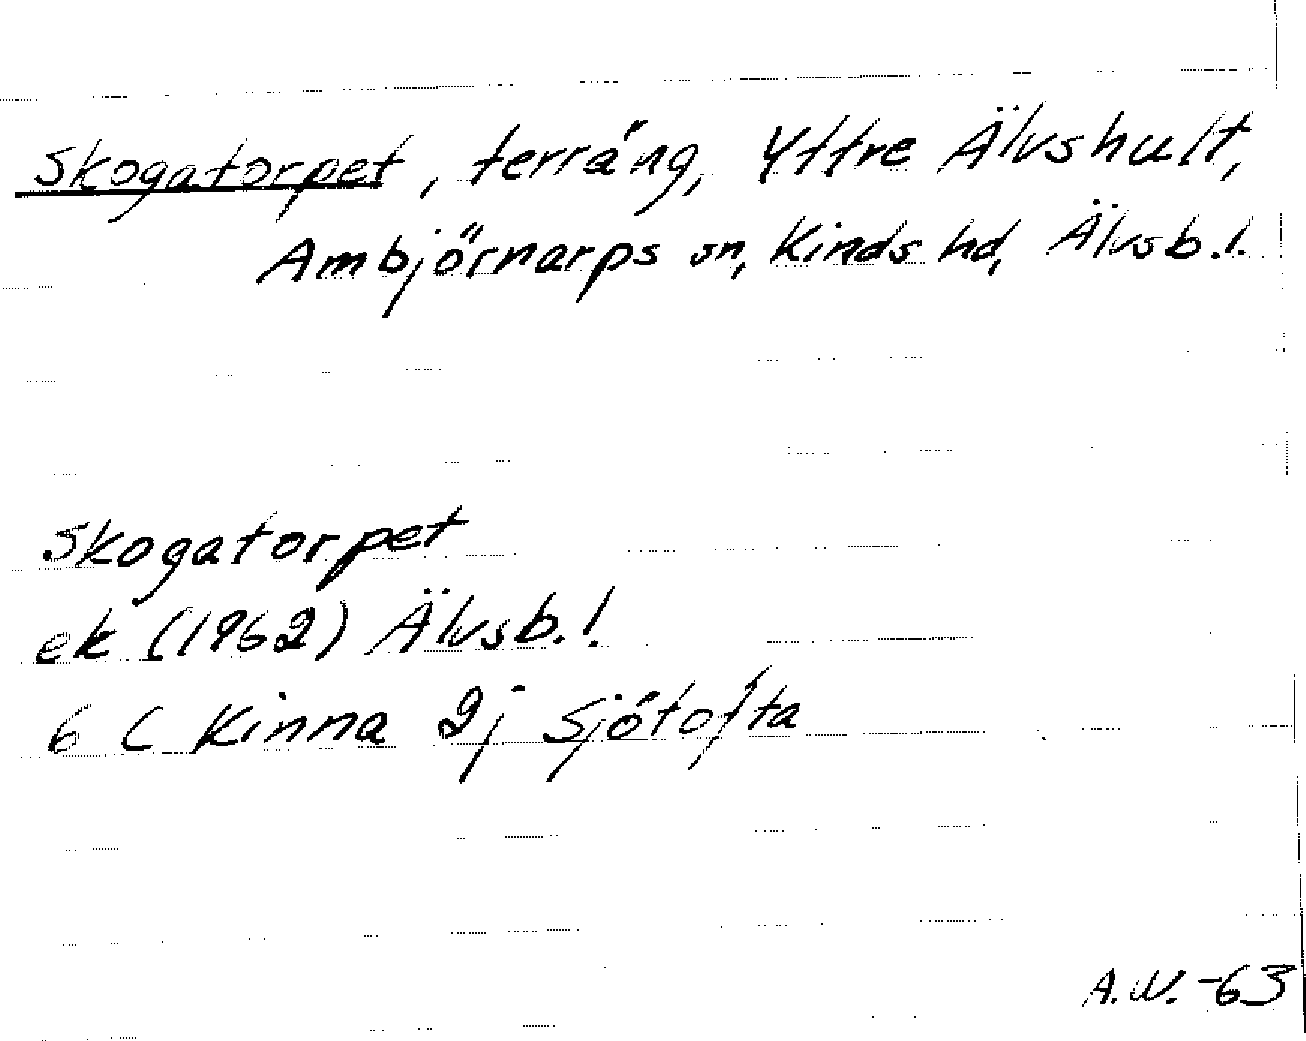 Skogatorpet, terräng, Yttre Älvshult,
Ambjörnarps sn, Kinds hd, Älvsb. l.
Skogatorpet
ek (1962) Älvsb. l.
6 C Kinna 2j Sjötofta
A.W. -63